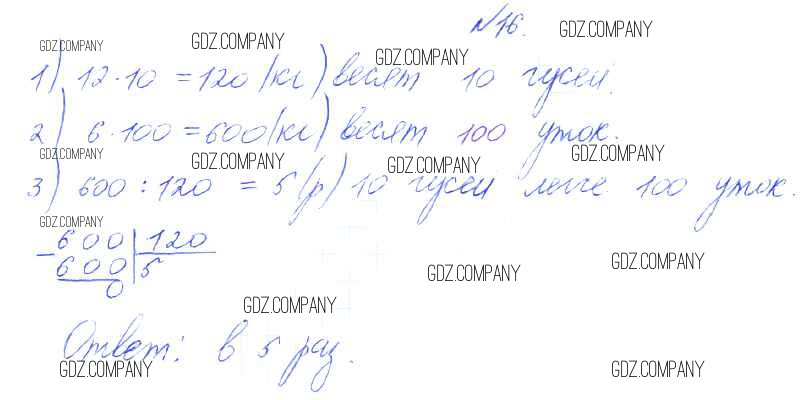 №16.
1) 12·10 = 120 (кг) весят 10 гусей.
2) 6·100 = 600 (кг) весят 100 уток.
3) 600 : 120 = 5 (р) 10 гусей легче 100 уток.
600 | 120
- 600 | 5
0
Ответ: в 5 раз.
GDZ.COMPANY
GDZ.COMPANY
GDZ.COMPANY
GDZ.COMPANY
GDZ.COMPANY
GDZ.COMPANY
GDZ.COMPANY
GDZ.COMPANY
GDZ.COMPANY
GDZ.COMPANY
GDZ.COMPANY
GDZ.COMPANY
GDZ.COMPANY
GDZ.COMPANY